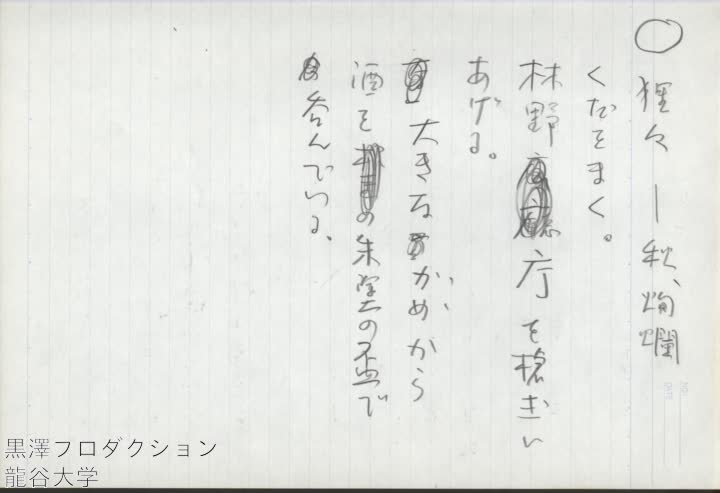 ○ 猩々 ― 秋、絢爛
くだをまく。
林野庁を槍玉に
あげる。
大きなかめから
酒を朱塗の盃で
呑んでいる。
黒澤プロダクション
龍谷大学